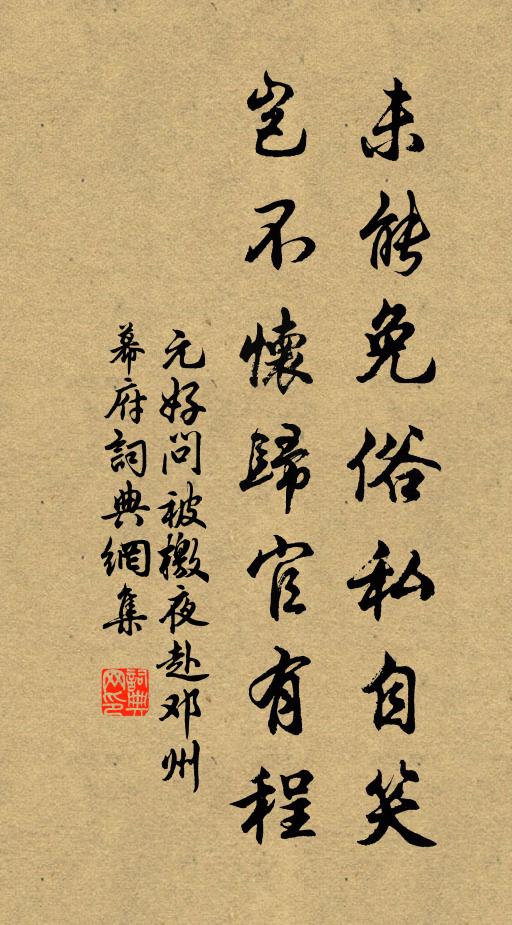 未能免俗私自笑
岂不懷歸官有程
元好问被檄夜赴邓州
幕府詞典網集
詞典网印